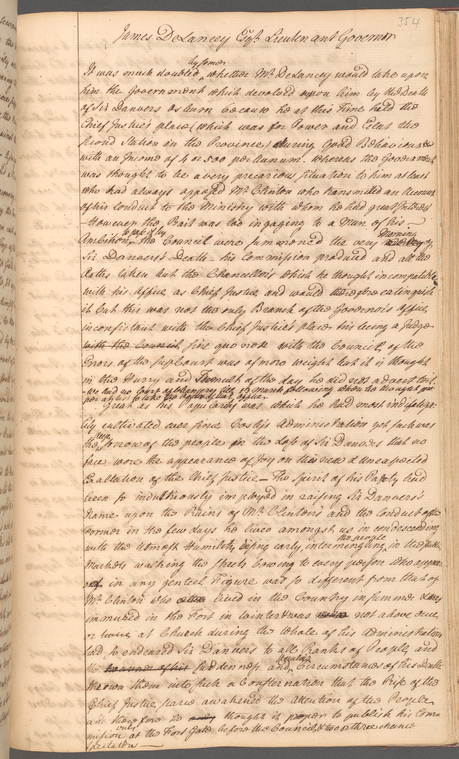 354
James DeLancey Esqr. Lieutenant Governor
by some
It was much doubted whether Mr. DeLancey would take upon
him the Government which devolved upon him by the Death
of Sir Danvers Osburn because he at this Time held the
Chief Justice's place (which was for Power and the
Second Station in the Province) during good Behaviour
with an Income of 1500 per Annum. whereas the Government
was thought to be a very precarious situation to him at least
who had always opposed Mr. Clinton who transmitted an Account
of his Conduct to the Ministry with whom he had great
However the Bait was too ingaging to a Man of his
Ambition. The Council were summoned the very Morning
Sir Danvers's Death his Commission produced and all the
Oaths taken but the Chancellor's which he thought incompatible
with his Office as Chief Justice and would therefore extinguish
it but this was not the only Branch of the Governor's Office
inconsistent with the Chief Justice's place his being a Judge
with the Council, sine quo non with the Council of the
Errors of the Sup: Court was of more weight but it is thought
in the Hurry and Tumult of the day he did not advert to it.
Great as his Popularity was which he had most indefatiga-
bly cultivated ever since Cosby's Administration yet such was
the sorrow of the people in the Loss of Sir Danvers that no
face wore the appearance of Joy on this new & unexpected
Exaltation of the Chief Justice — The Spirit of his Party had
been so industriously imployed in raising Sir Danvers's
Fame upon the Ruins of Mr. Clinton's and the Conduct of the
former in the few days he lived amongst us in condescending
the people
with the utmost Humility, rising early, intermingling in the
Markets walking the Streets bowing to every person who appear
in any genteel Figure was so different from that of
Mr. Clinton who lived in the Country in summer
immured in the Fort in Winter & was not above once
or twice at Church during the whole of his Administration
had so endeared Sir Danvers to all Ranks of People, and
the suddenness and Circumstances of his Death
thrown them into such a Consternation that the Rise of the
Chief Justice scarce awakened the Attention of the People
and therefore he thought it proper to publish his Com
mission at the Fort Gate before the Council & two or three chance
Spectators —